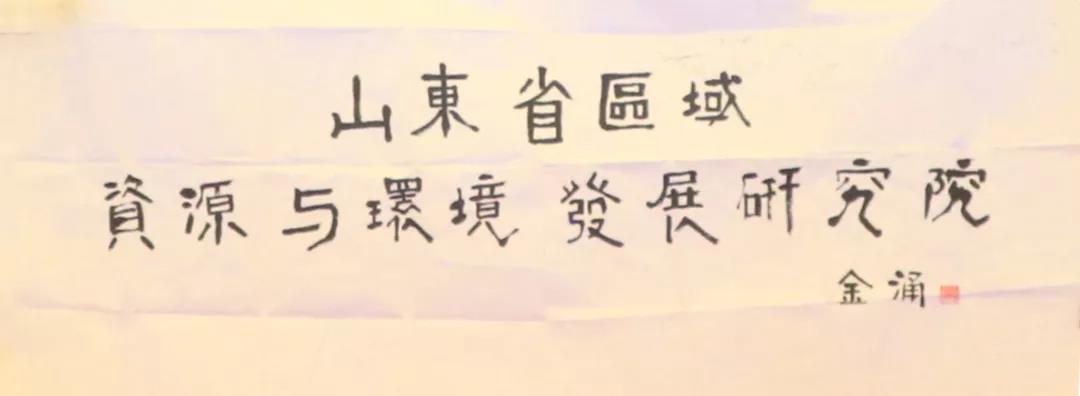 山東省區域
資源与環境發展研究院
金涌